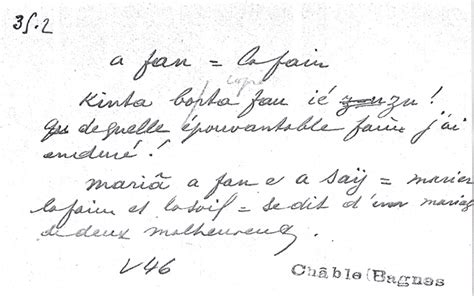 35.2
a fan = la faim
Kinta bopta fan ié zu !
de quelle épouvantable faim j'ai
enduré !
mariā a fan e a saÿ = marier
la faim et la soif = se dit d'un mariage
de deux malheureux.
V 46
Châble (Bagnes